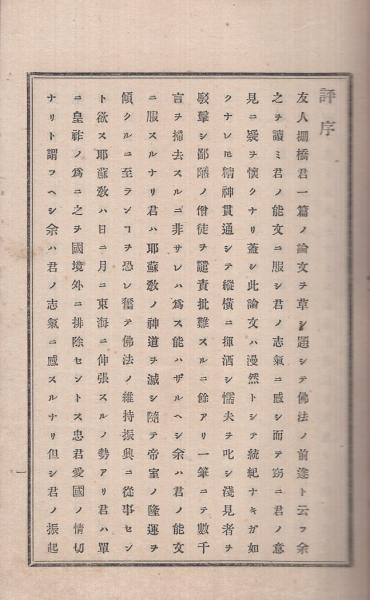 評序
友人棚橋君一篇ノ論文ヲ草シ題シテ佛法ノ前途ト云フ余
之ヲ讀ミ君ノ能文ニ服シ君ノ志氣ニ感シ而テ竊ニ君ノ意
見ニ疑ヲ懷クナリ蓋シ此論文ハ漫然トシテ統紀ナキガ如
クナレ𪜈精神貫通シテ縱橫ニ揮洒シ懦夫ヲ叱シ淺見者ヲ
駁擊シ鄙陋ノ僧徒ヲ譴責批難スルニ餘アリ一筆ニテ數千
言ヲ掃去スルニ非サレハ爲ス能ハザルヘシ余ハ君ノ能文
ニ服スルナリ君ハ耶蘇敎ノ神道ヲ滅シ隨テ帝室ノ隆運ヲ
傾クルニ至ランヿヲ恐レ奮テ佛法ノ維持振興ニ從事セン
ト欲ス耶蘇敎ハ日ニ月ニ東海ニ伸張スルノ勢アリ君ハ單
ニ皇祚ノ爲ニ之ヲ國境外ニ排除セントス忠君愛國ノ情切
ナリト謂フヘシ余ハ君ノ志氣ニ感スルナリ但シ君ノ振起
一